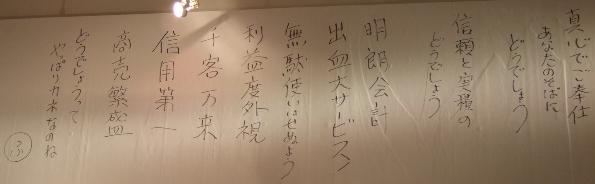 真心でご奉仕
あなたのそばに
どうでしょう
信頼と実積の
どうでしょう
明朗会計
出血大サービス
無駄使いはせぬよう
利益度外視
千客万来
信用第一
商売繁盛
どうでしょうって
やっぱりカネなのね
ふ